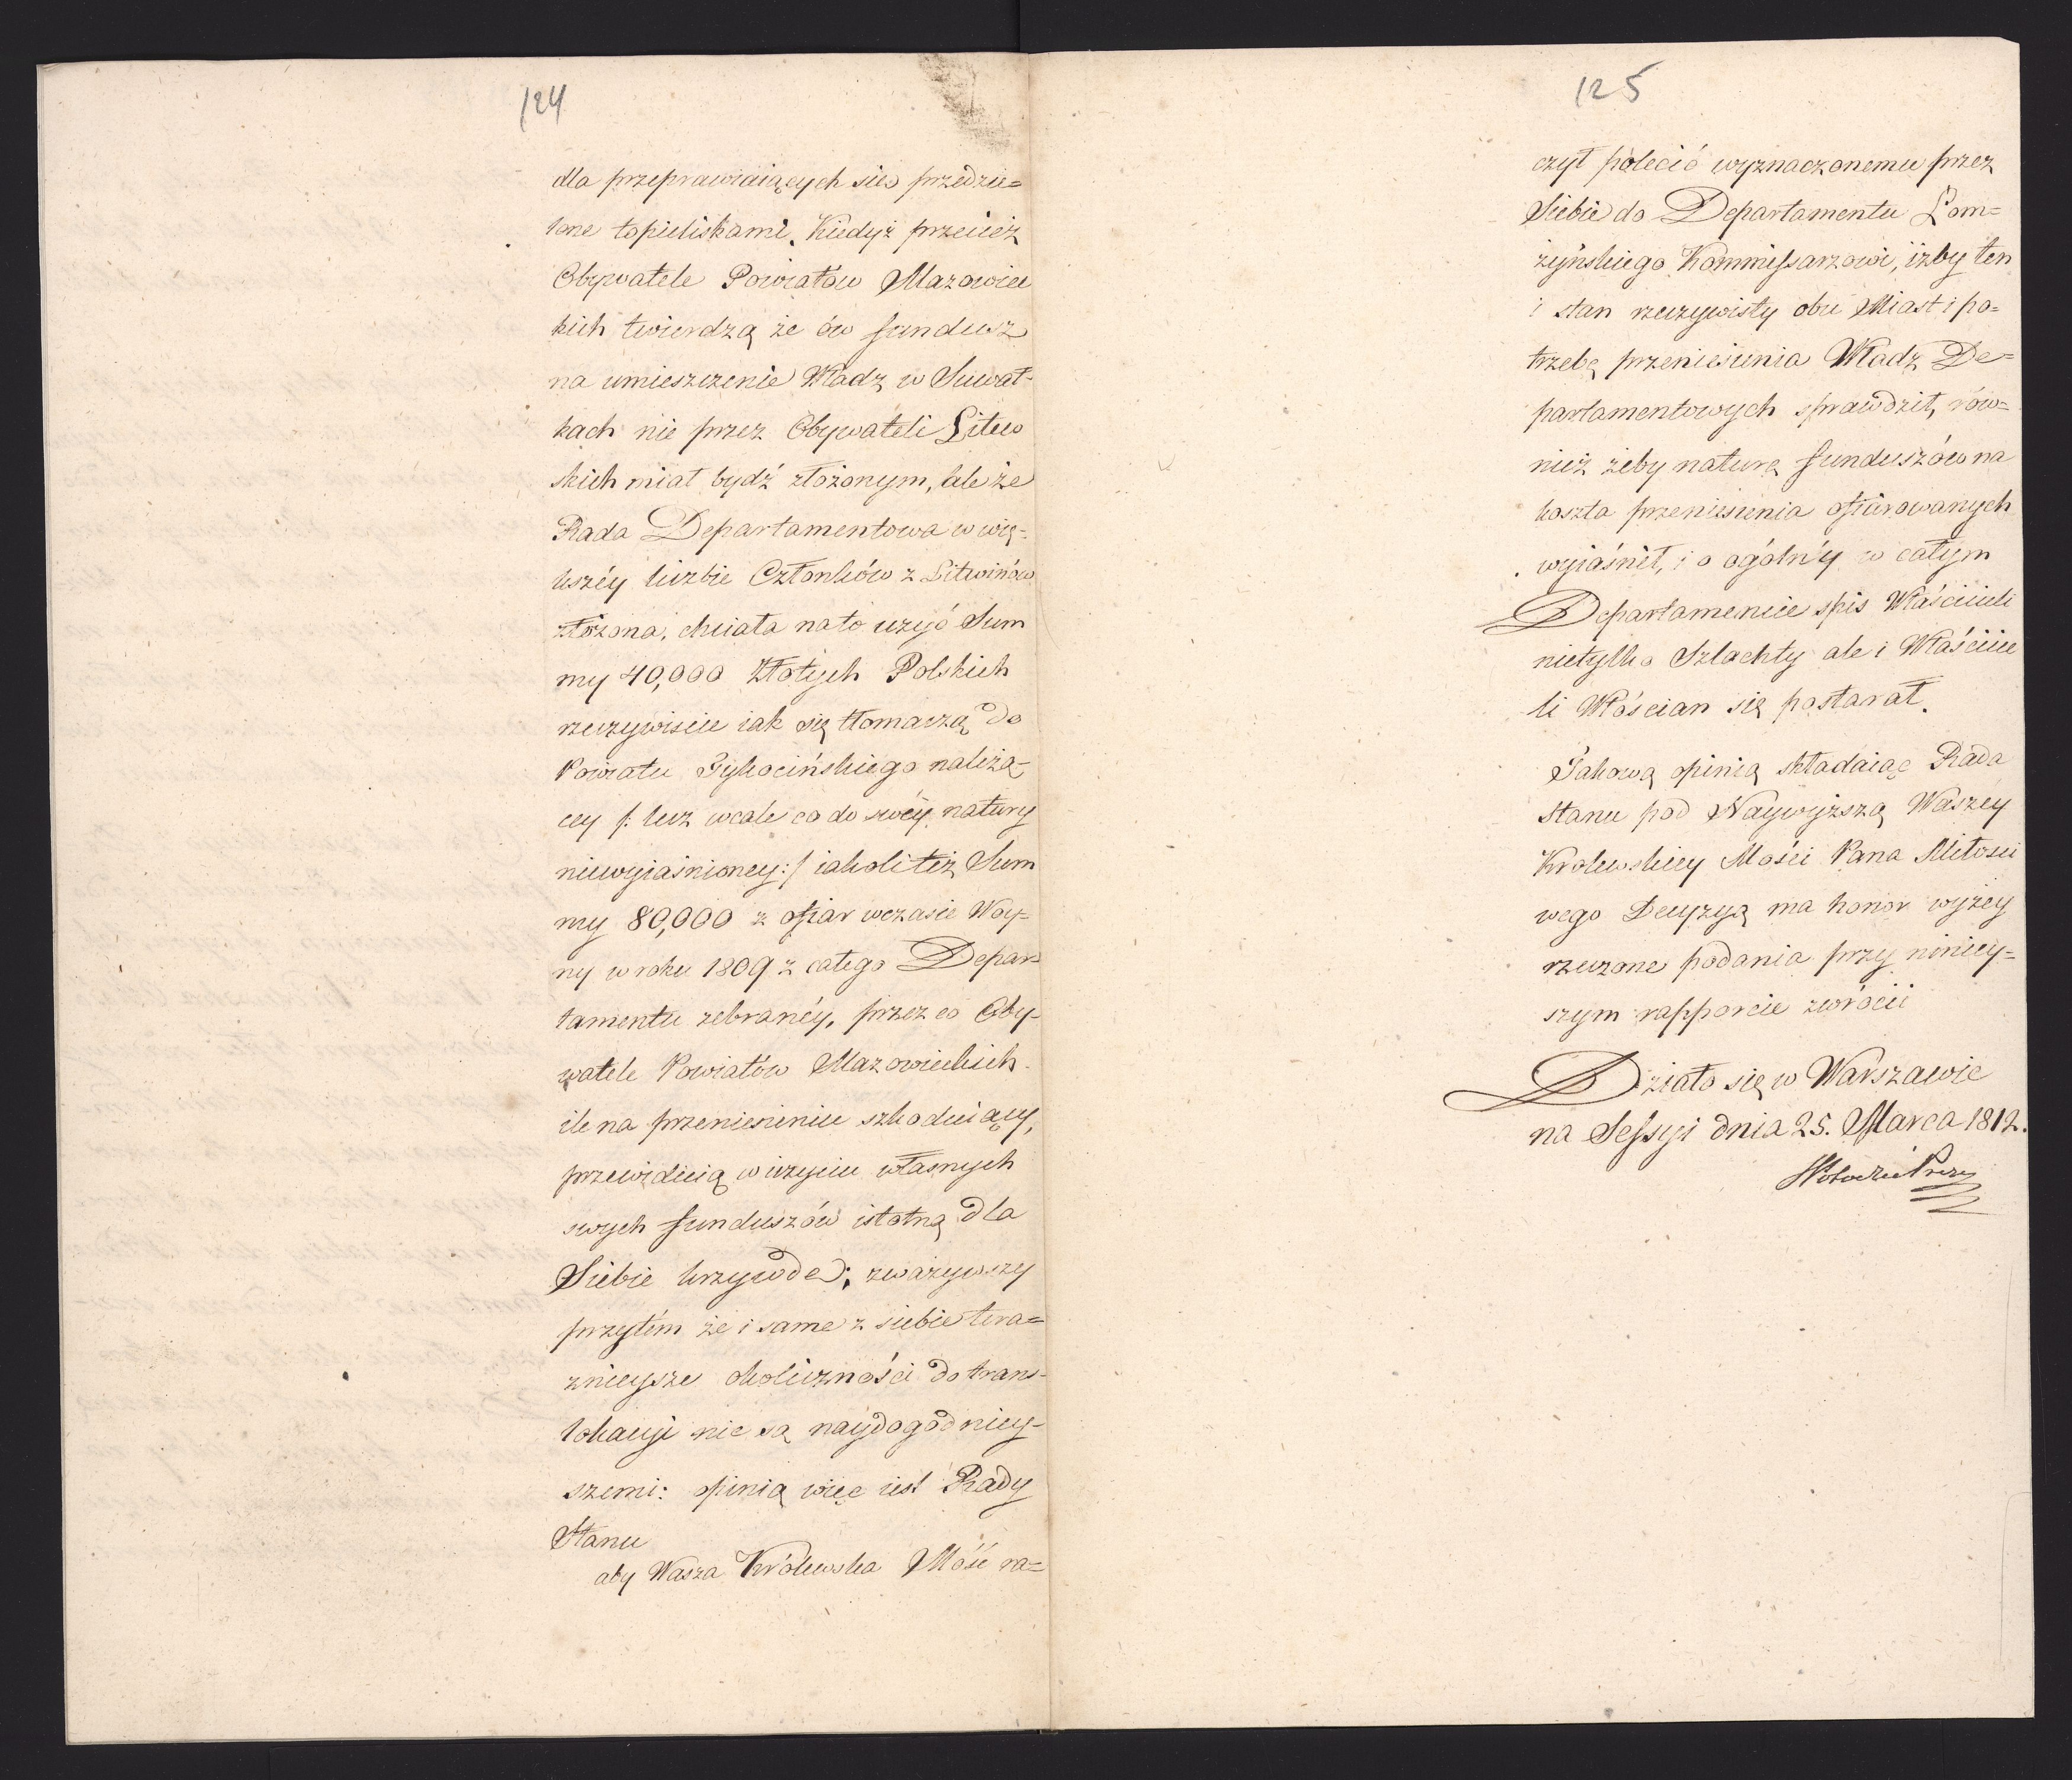 124
dla przeprawiaiących sie przedzie=
lone topieliskami. Kiedyż przecież
Obywatele Powiatów Mazowiec
kich twierdzą że ów fundusz
na umieszczenie Władz w Suwał-
kach nie przez Obywateli Litew
skich miał bydź złożonym, ale że
Rada Departamentowa w wię-
kszéy liczbie Członków z Litwinów
złożona, chciała na to użyć Sum
my 40,000 Złotych Polskich
rzeczywiście iak się tłomaczą do
Powiatu Tykocińskiego należą-
cey /: lecz wcale co do swéy natury
niewyiaśnioney :/ iakoli też Sum
my 80,000 z ofiar wczasie Woy-
ny w roku 1809 z całego Depar=
tamentu zebranéy, przez co Oby-
watele Powiatów Mazowieckich
ile na przeniesieniu szkoduiący,
przewidzieią w użyciu własnych
swych funduszów istotną dla
Siebie krzywde; zważywszy
przytém że i same z siebie tera=
znieysze okoliczności do trans-
lokacyi nie są naydogodniey-
szemi: opinią więc iest Rady
Stanu
aby Wasza Królewska Mość ra=
125
czył polecić wyznaczonemu przez
Siebie do Departamentu Łom=
żyńskiego Kommissarzowi, iżby ten
i stan rzeczywisty obu Miast i po=
trzebę przeniesienia Władz De=
partamentowych sprawdził, rów=
nież żeby naturę funduszów na
koszta przeniesienia ofiarowanych
wyiaśnił, i o ogólny w całym
Departamencie spis Właścicieli
nietylko Szlachty ale i Właścicie
li Włościan się postarał.
Takową opinią składaiąc Rada
Stanu pod Naywyższą Waszey
Krolewskiey Mości Pana Miłości
wego Decyzyą ma honor wyżey
rzeczone podania przy niniey=
szym rapporcie zwrócić
Działo się w Warszawie
na Sessyi dnia 25. Marca 1812.